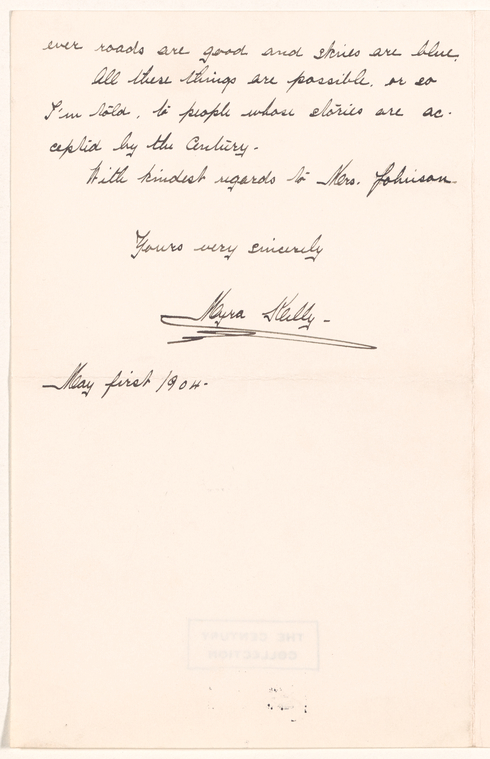 ever roads are good and skies are blue.
All these things are possible, or so
I'm told, to people whose stories are ac-
cepted by the Century.
With kindest regards to Mrs. Johnson.
Yours very sincerely
Myra Kelly-
May first 1904.
THE CENTURY
COLLECTION